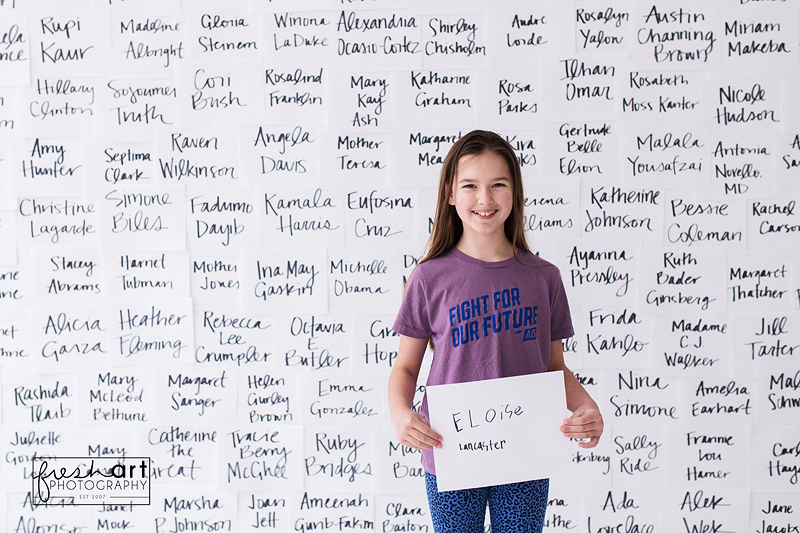 Rupi Kaur
Madeline Albright
Gloria Steinem
Winona LaDuke
Alexandria Ocasio-Cortez
Shirley Chisholm
Andre Lorde
Rosalyn Yalow
Austin Channing Brown
Miriam Makeba
Hillary Clinton
Sojourner Truth
Cori Bush
Rosalind Franklin
Mary Kay Ash
Katharine Graham
Rosa Parks
Ilhan Omar
Rosabeth Moss Kanter
Nicole Hudson
Amy Hunter
Septima Clark
Raven Wilkinson
Angela Davis
Mother Teresa
Margaret
Kira
Gertrude Belle Elion
Malala Yousafzai
Antonia Novello, MD
Christine Lagarde
Simone Biles
Fadumo Dayib
Kamala Harris
Eufosina Cruz
Katherine Johnson
Bessie Coleman
Rachel Carson
Stacey Abrams
Harriet Tubman
Mother Jones
Ina May Gaskin
Michelle Obama
Ayanna Pressley
Ruth Bader Ginsberg
Margaret Thatcher
FIGHT FOR
OUR FUTURE
Alicia Garza
Heather Fleming
Rebecca Lee Crumpler
Octavia E Butler
Frida Kahlo
Madame C.J Walker
Jill Tarter
Rashida Tlaib
Mary McLeod Bethune
Margaret Sanger
Helen Gurley Brown
Emma Gonzalez
Nina Simone
Amelia Earhart
ELOISE
Lancaster
Julielle
Catherine the Great
Tracie Berry McGhee
Ruby Bridges
Sally Ride
Frannie Lou Hamer
fresh ART
PHOTOGRAPHY
EST 2007
Alicia Alonso
Janet Mock
Marsha P. Johnson
Joan Jett
Ameenah Gurib-Fakim
Clara Barton
Ada Lovelace
Alek Wek
Jane Jacobs